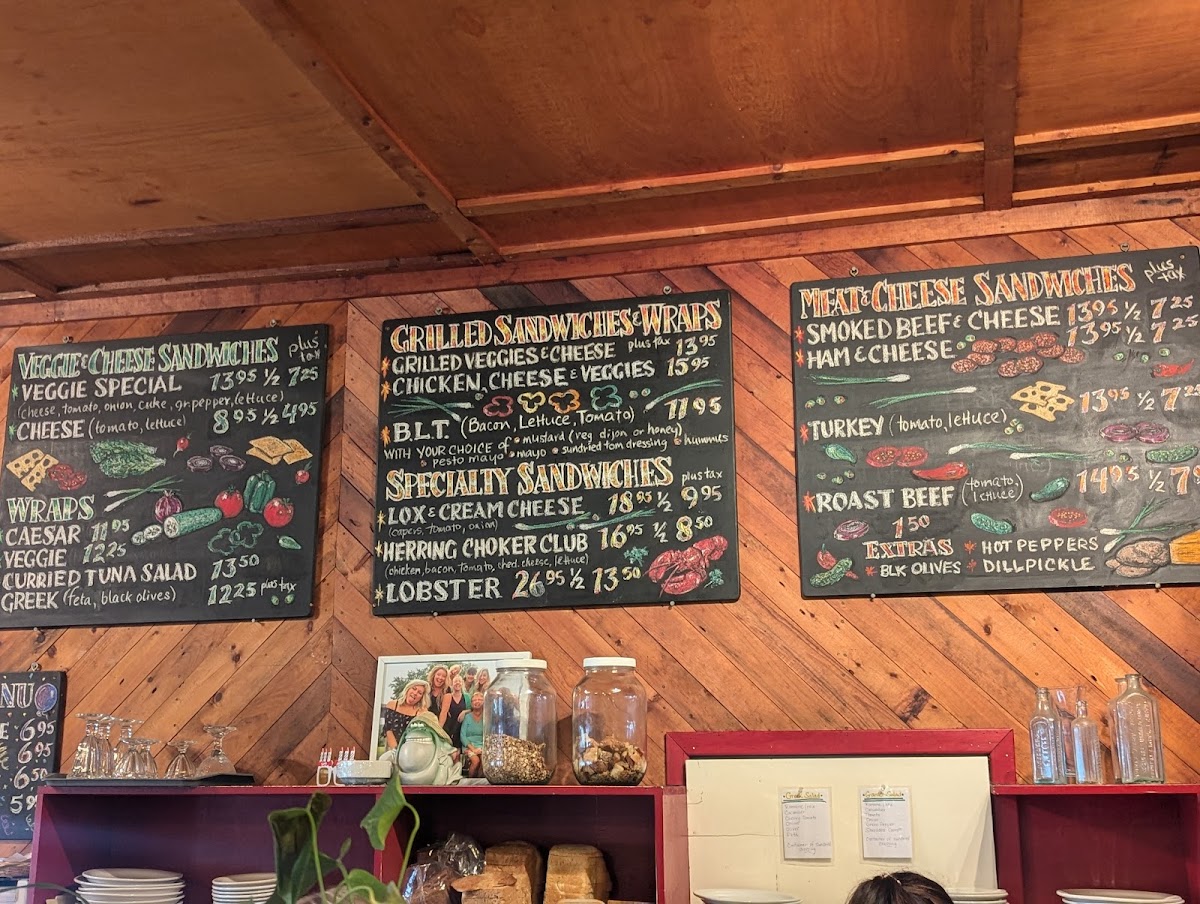 VEGGIE & CHEESE SANDWICHES plus tax
VEGGIE SPECIAL 13 95 ½ 7 25
(cheese, tomato, onion, cuke, gr. pepper, lettuce)
CHEESE (tomato, lettuce) 8 95 ½ 4 95
WRAPS
CAESAR 11 95
VEGGIE 12 25
CURRIED TUNA SALAD 13 50
GREEK (feta, black olives) 12 25 plus tax
GRILLED SANDWICHES & WRAPS
GRILLED VEGGIES & CHEESE plus tax 13 95
CHICKEN, CHEESE & VEGGIES 15 95
B.L.T. (Bacon, Lettuce, Tomato) 11 95
WITH YOUR CHOICE of • mustard (reg. dijon or honey)
• pesto mayo • mayo • sundried tom dressing • hummus
SPECIALTY SANDWICHES plus tax
LOX & CREAM CHEESE 18 95 ½ 9 95
(capers, tomato, onion)
HERRING CHOKER CLUB 16 95 ½ 8 50
(chicken, bacon, tomato, ched. cheese, lettuce)
LOBSTER 26 95 ½ 13 50
MEAT & CHEESE SANDWICHES plus tax
SMOKED BEEF & CHEESE 13 95 ½ 7 25
HAM & CHEESE 13 95 ½ 7 25
TURKEY (tomato, lettuce) 13 95 ½ 7 2
ROAST BEEF (tomato, lettuce) 14 95 ½ 7
1 50
EXTRAS * HOT PEPPERS
* BLK OLIVES * DILL PICKLE
NU
E 6 95
6 95
6 50
5 9